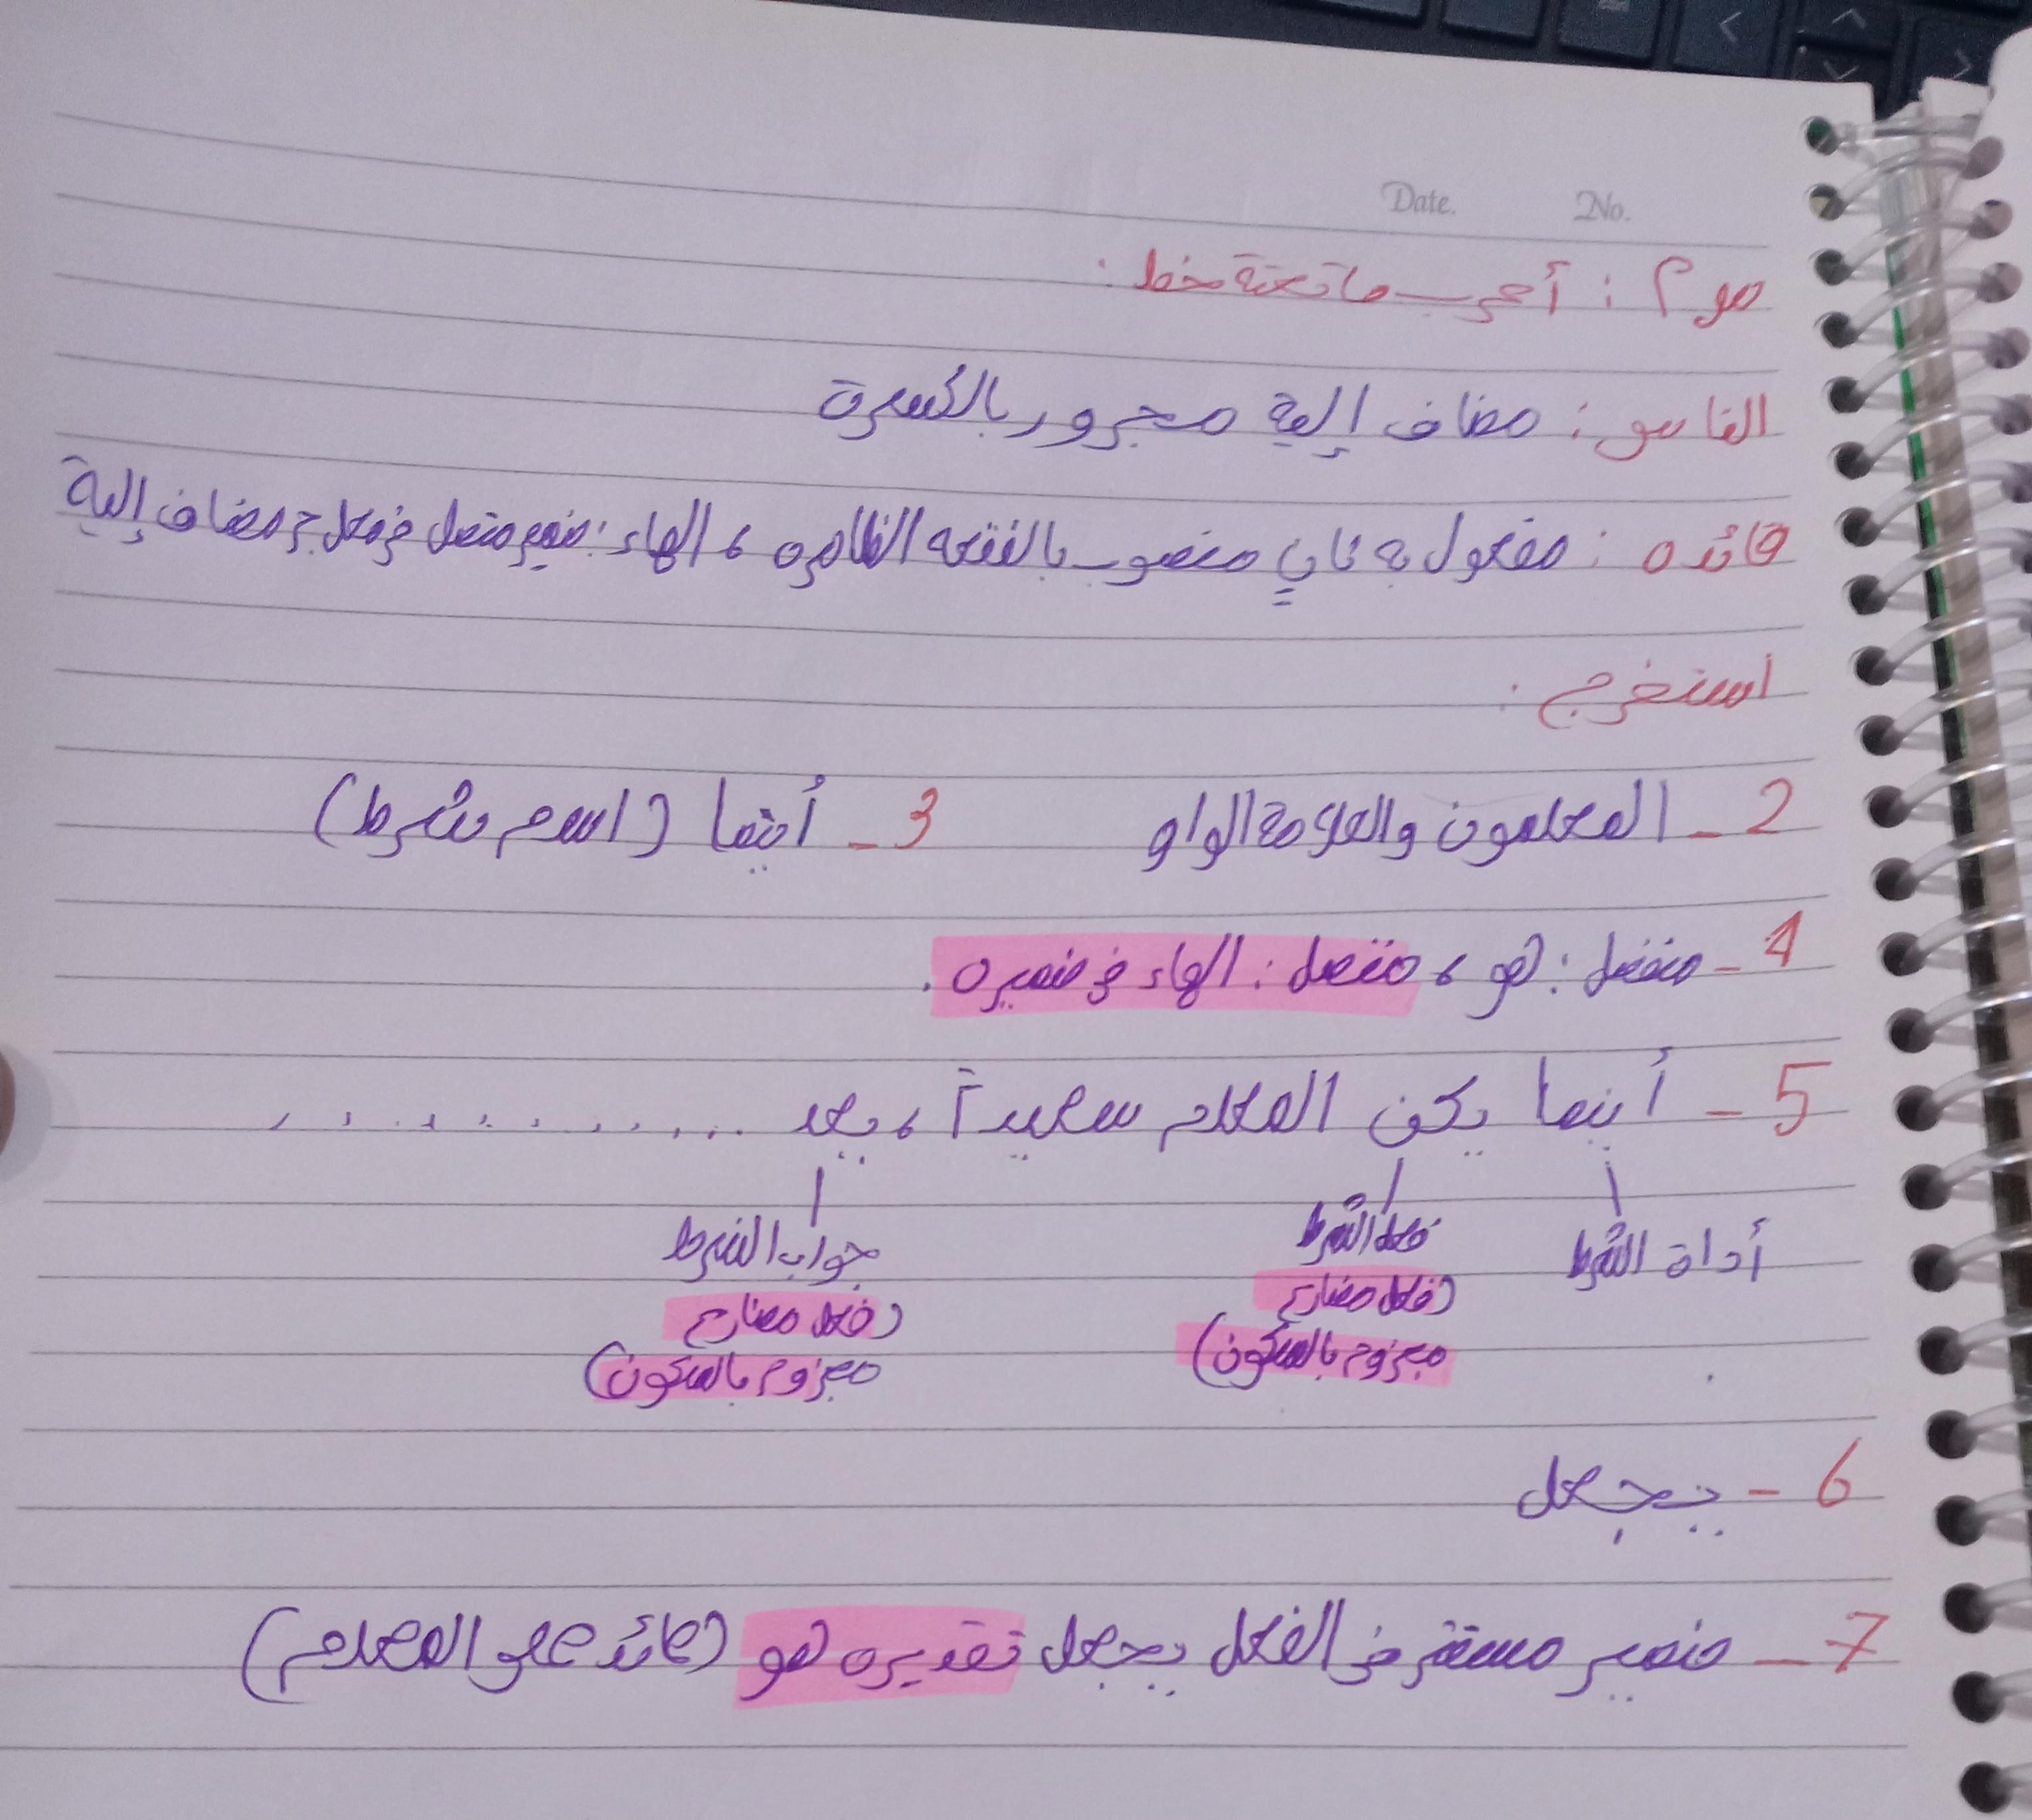 Date. No.
س٢ : أعرب ما تحتة خط :
الناس : مضاف إلية مجرور بالكسرة
قائده : مفعول به ثانٍ منصوب بالفتحه الظاهره ، الهاء : ضمير متصل في محل جر مضاف إلية
استخرج :
2 - المعلمون والعلامة الواو 3 - أينما (اسم شرط)
4 - منفصل : هو ، متصل : الهاء في ضميره .
5 - أينما يكن المعلم سعيداً ، يعد ............
أداة الشرط فعل الشرط جواب الشرط
(فعل مضارع (فعل مضارع
مجزوم بالسكون) مجزوم بالسكون)
6 - يجعل
7 - ضمير مستتر في الفعل يجعل تقديره هو (عائد على المعلم)